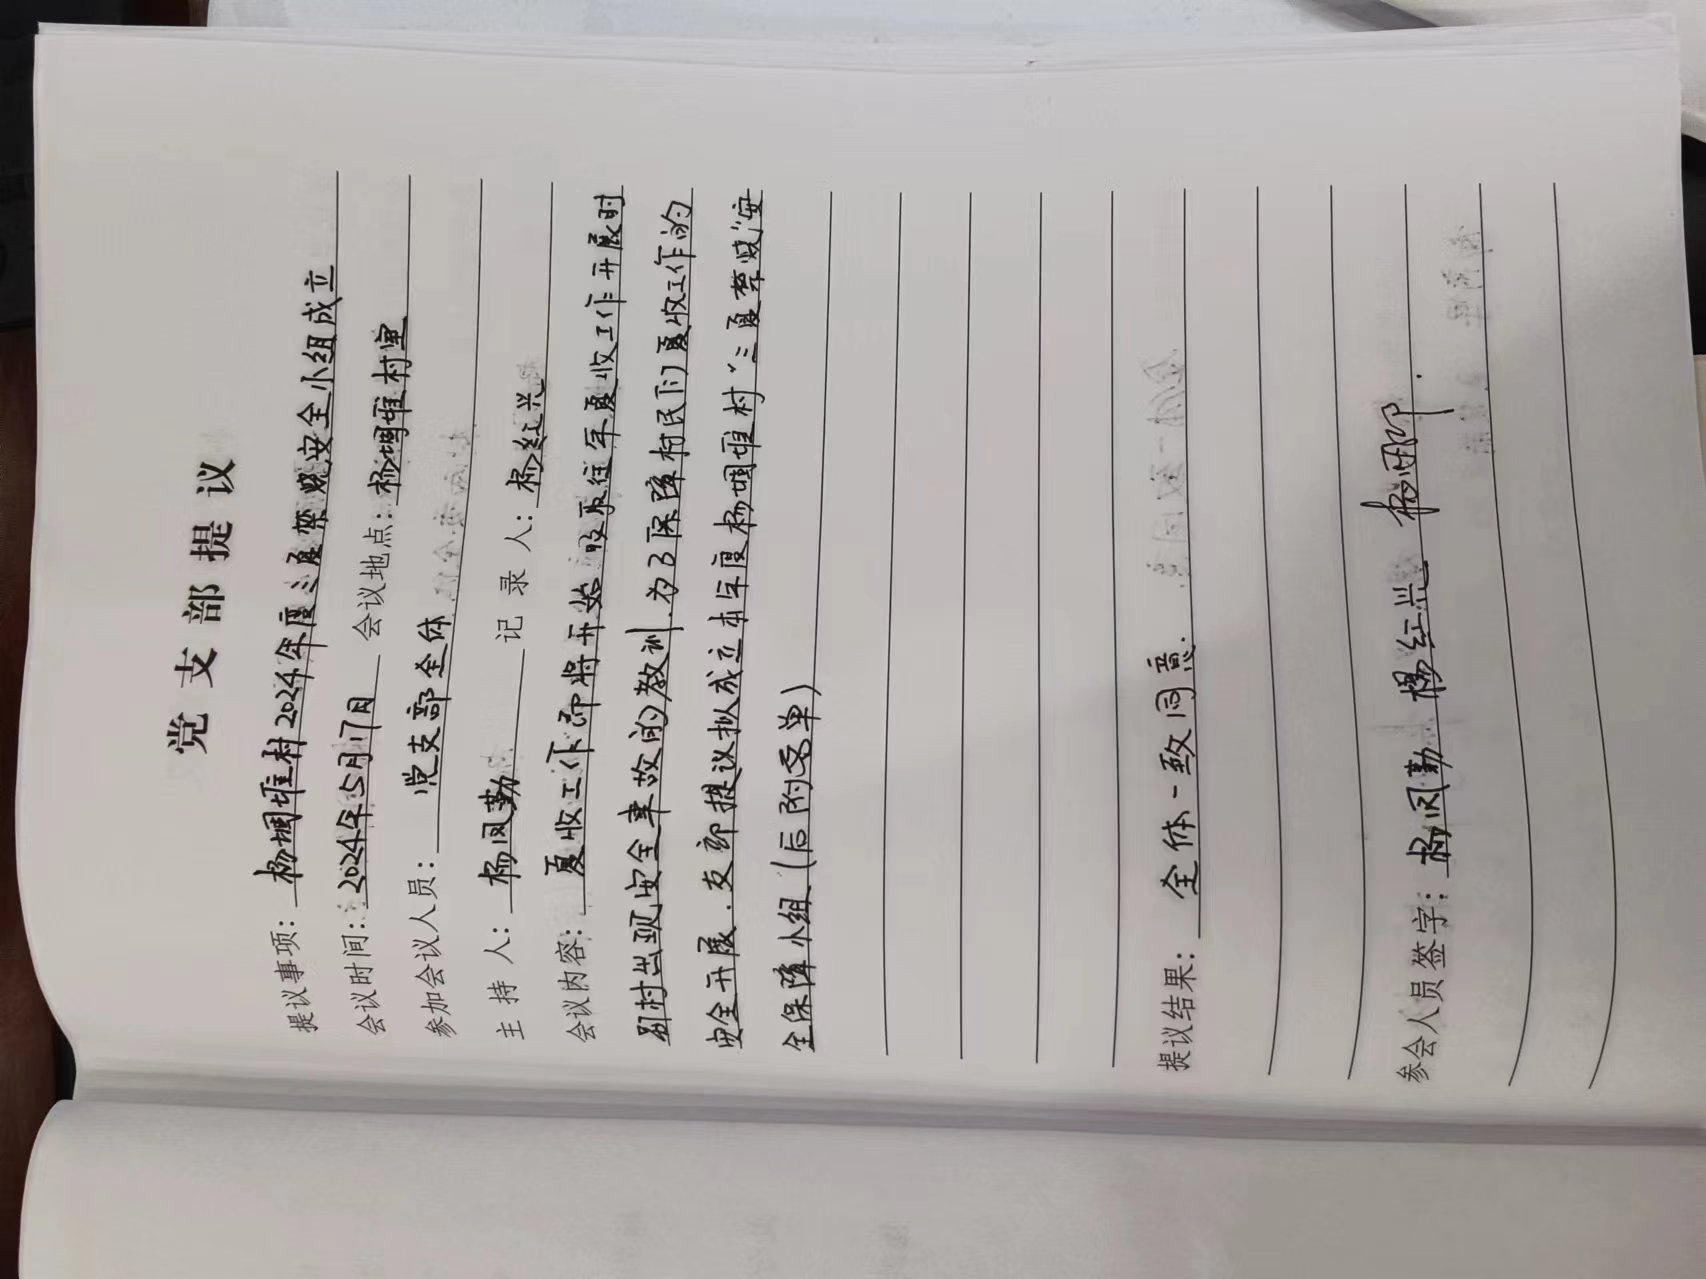 党支部提议
提议事项：杨堌堆村2024年度三夏禁烧安全小组成立
会议时间：2024年5月17日 会议地点：杨堌堆村室
参加会议人员：党支部全体
主持人：杨凤勤 记录人：杨红兴
会议内容：夏收工作即将开始吸取往年夏收工作开展时
别村出现安全事故的教训.为了保障村民们夏收工作的
安全开展.支部提议拟成立本年度杨堌堆村“三夏禁烧”安
全保障小组（后附名单）
提议结果：全体一致同意.
参会人员签字：杨凤勤 杨红兴